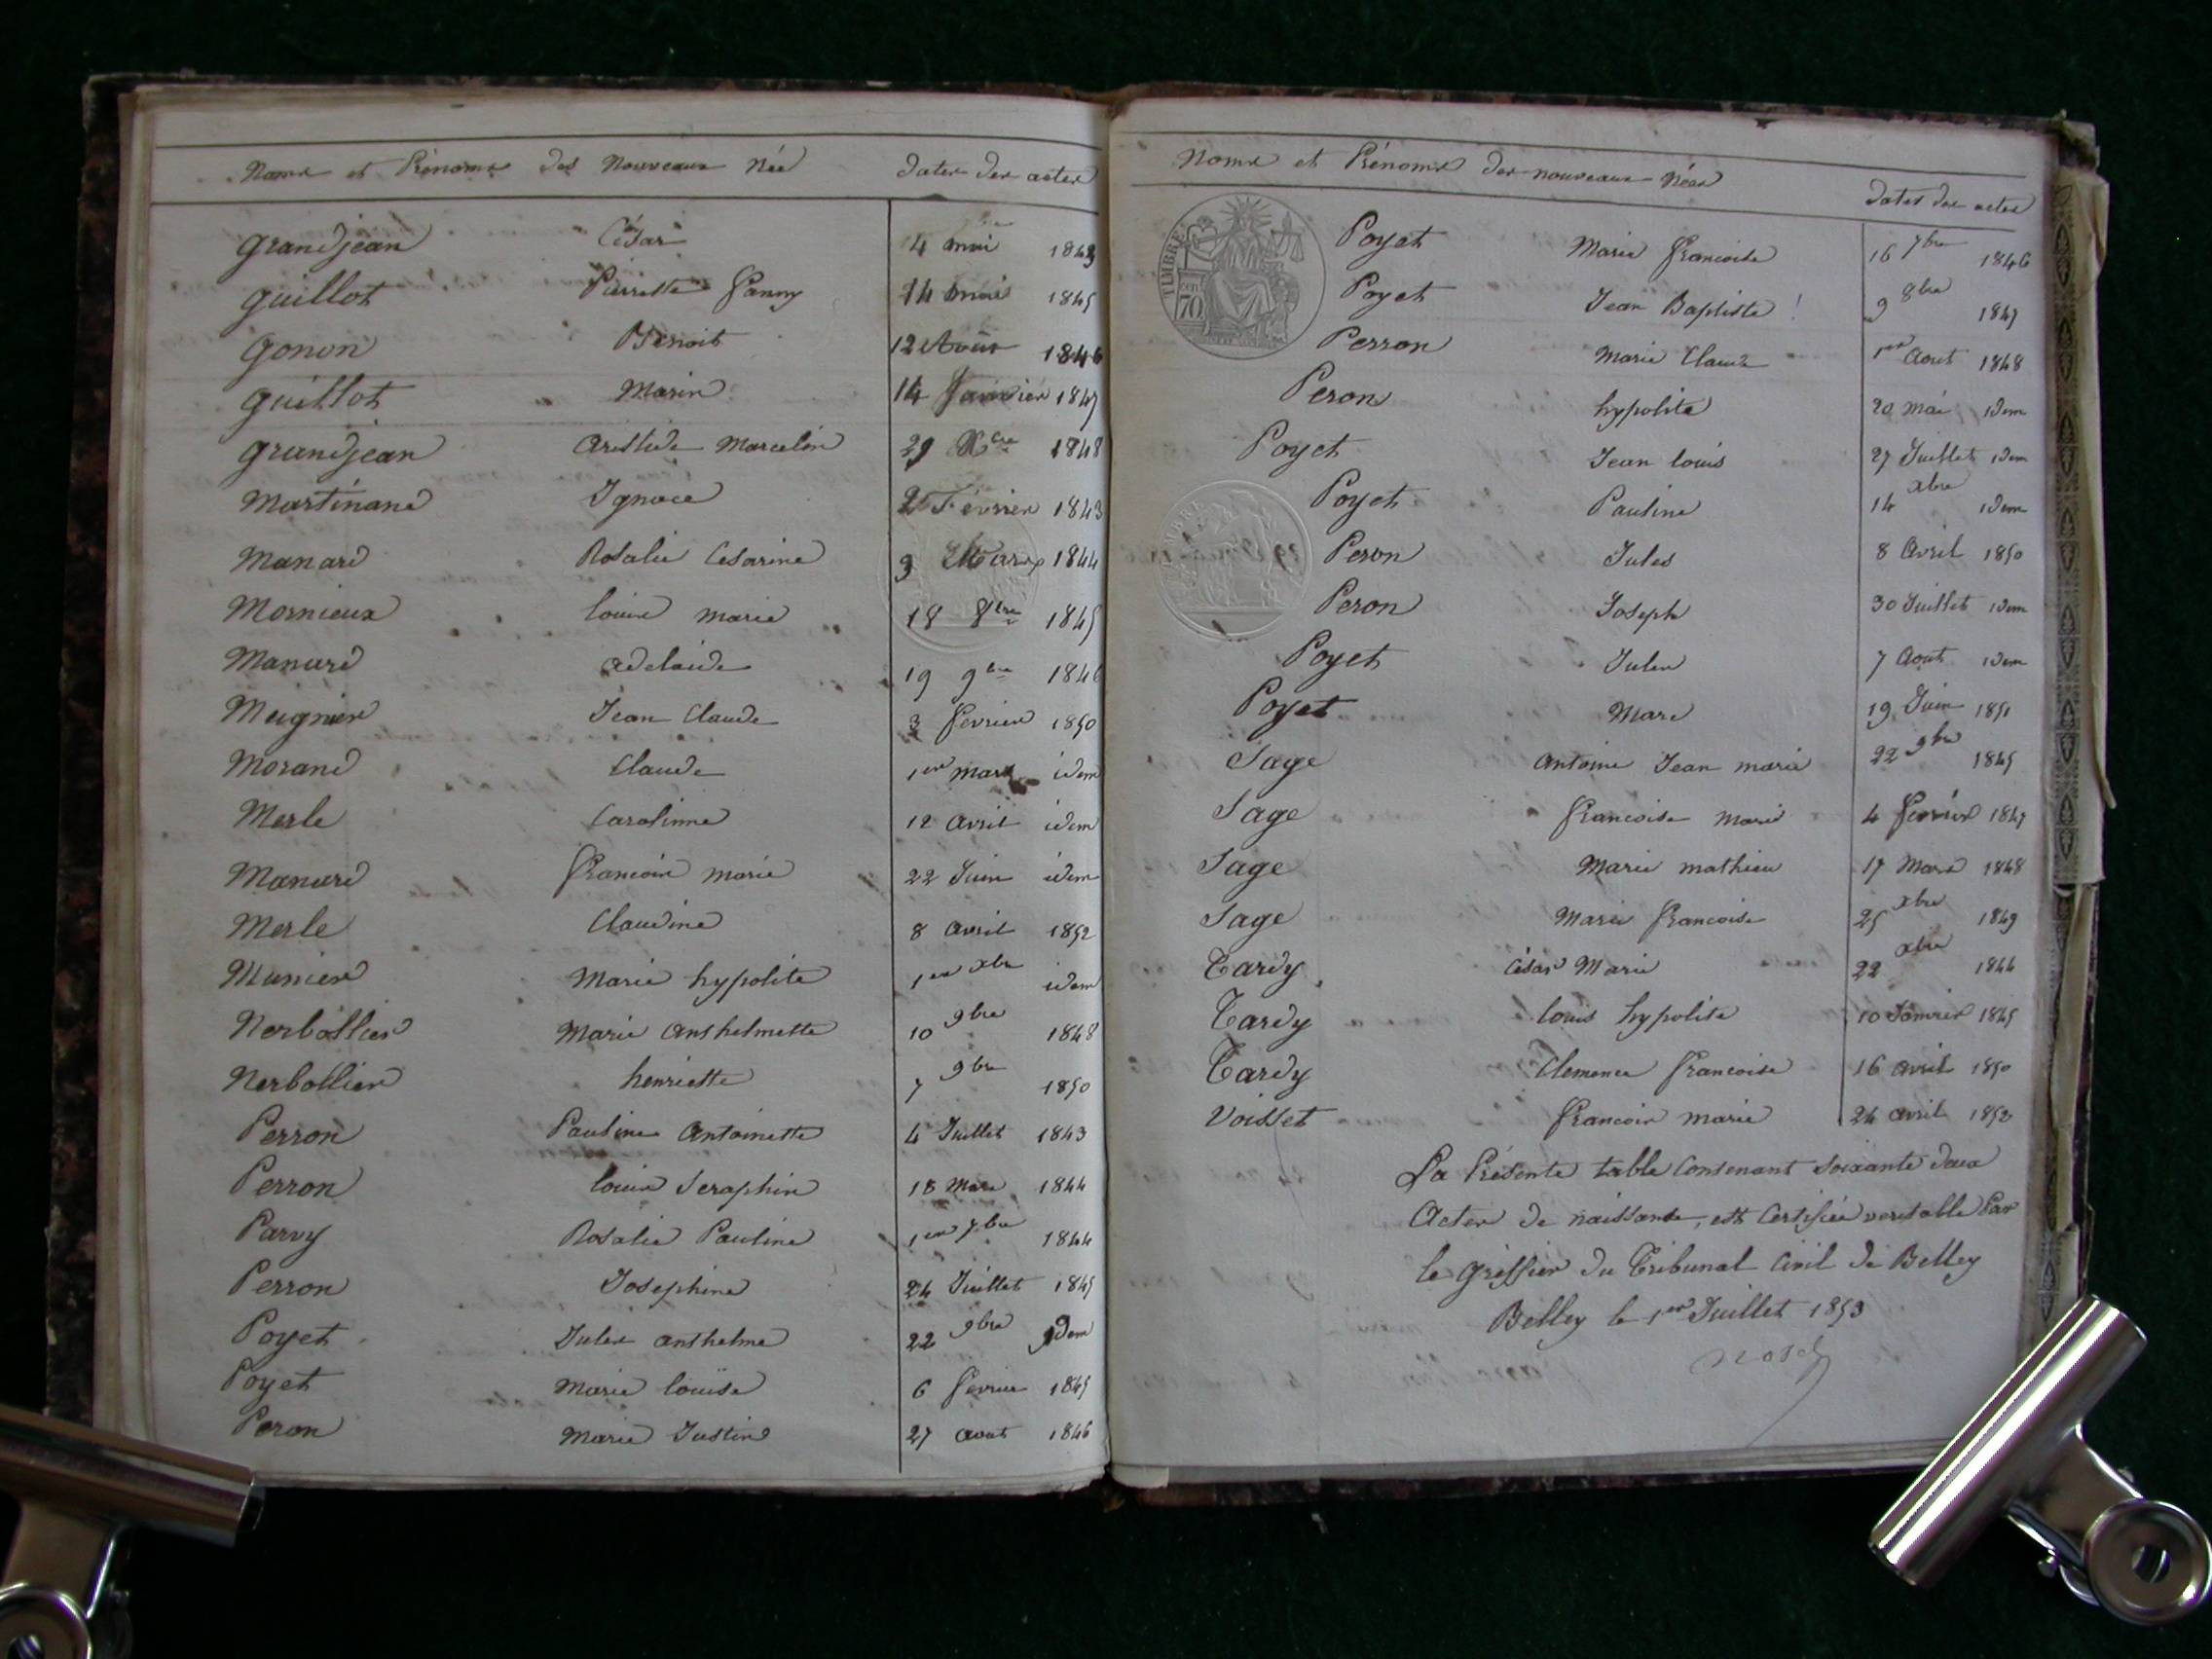 Noms et Prénoms des Nouveaux Nés dates des actes
grandjean César 4 mai 1843
guillot Pierrette fanny 14 mai 1845
gonon Benoit 12 Août 1846
guillot Marin 14 Janvier 1847
grandjean aristide Marcelin 29 Xbre 1848
Martinand Ignace 2 Février 1843
Manard Rosalie Cesarine 9 Mars 1844
Mornieux louise marie 18 8bre 1845
Manard adelaide 19 9bre 1846
Meignier Jean Claude 3 fevrier 1850
Morand Claude 1er mars idem
Merle Carolinne 12 avril idem
Manard francois marie 22 Juin idem
Merle Claudine 8 avril 1852
Munier Marie hypolite 1er xbre idem
Nerbollier Marie Anthelmette 10 9bre 1848
Nerbollier henriette 7 9bre 1850
Perron Pauline Antoinette 4 Juillet 1843
Perron louis Seraphin 18 Mars 1844
Parvy Rosalie Pauline 1er 7bre 1844
Perron Josephine 24 Juillet 1845
Poyet Jules anthelme 22 9bre idem
Poyet Marie louise 6 fevrier 1845
Peron Marie Justine 27 août 1846
Noms et Prénoms des nouveaux Nés dates des actes
TIMBRE
70
Poyet Marie francoise 16 7bre 1846
Poyet Jean Baptiste 9 8bre 1847
Perron Marie Claude 1er Aout 1848
Peron hypolite 20 mai idem
Poyet Jean louis 27 Juillet idem
Poyet Pauline 14 xbre idem
Peron Jules 8 Avril 1850
Peron Joseph 30 Juillet idem
Poyet Jules 7 Aout idem
Poyet Marc 19 Juin 1851
Sage Antoine Jean marie 22 9bre 1845
Sage francoise Marie 4 fevrier 1847
Sage Marie mathieu 17 Mars 1848
Sage Marie francoise 25 xbre 1849
Tardy César Marie 22 xbre 1844
Tardy louis hypolite 10 Janvier 1845
Tardy Clemence francoise 16 avril 1850
Voisset francois marie 24 avril 1852
La Présente table Contenant soixante deux
Actes de naissance, est Certifiée veritable Par
le greffier du Tribunal Civil de Belley
Belley le 1er Juillet 1853